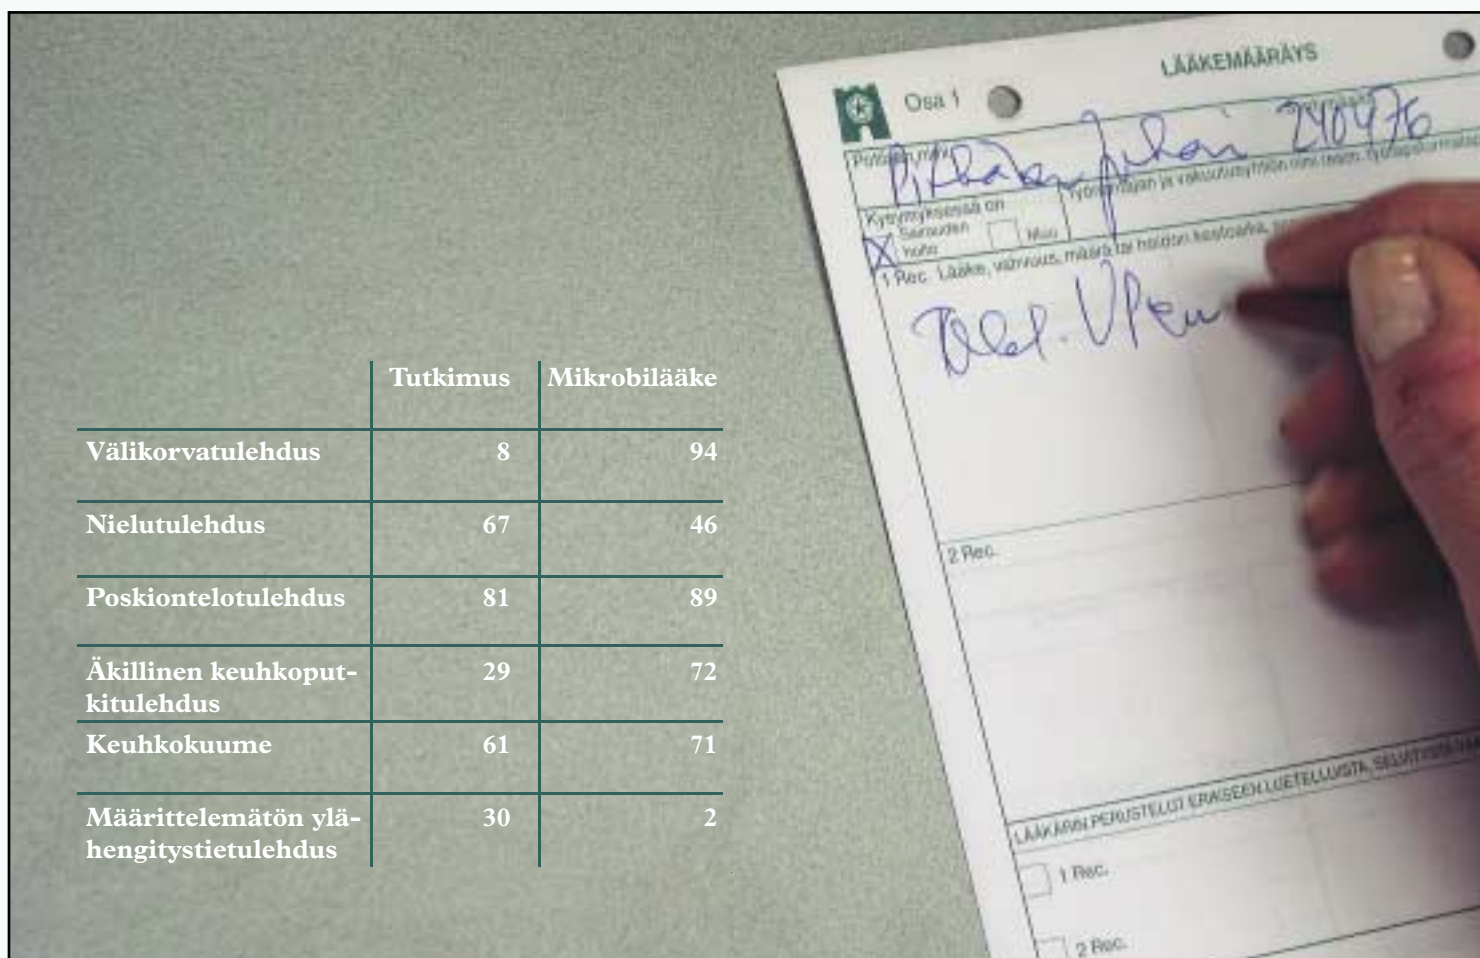 Tutkimus Mikrobilääke
Välikorvatulehdus 8 94
Nielutulehdus 67 46
Poskiontelotulehdus 81 89
Äkillinen keuhkoput-
kitulehdus 29 72
Keuhkokuume 61 71
Määrittelemätön ylä-
hengitystietulehdus 30 2
LÄÄKEMÄÄRÄYS
Osa 1
240476
Kysymyksessä on
X Sairauden
hoito
Muu
1 Rec. Lääke, vahvuus, määrä tai hoidon kestoaika,
2 Rec.
LÄÄKÄRIN PERUSTELUT ERIKSEEN LUETELLUISTA,
1 Rec.
2 Rec.